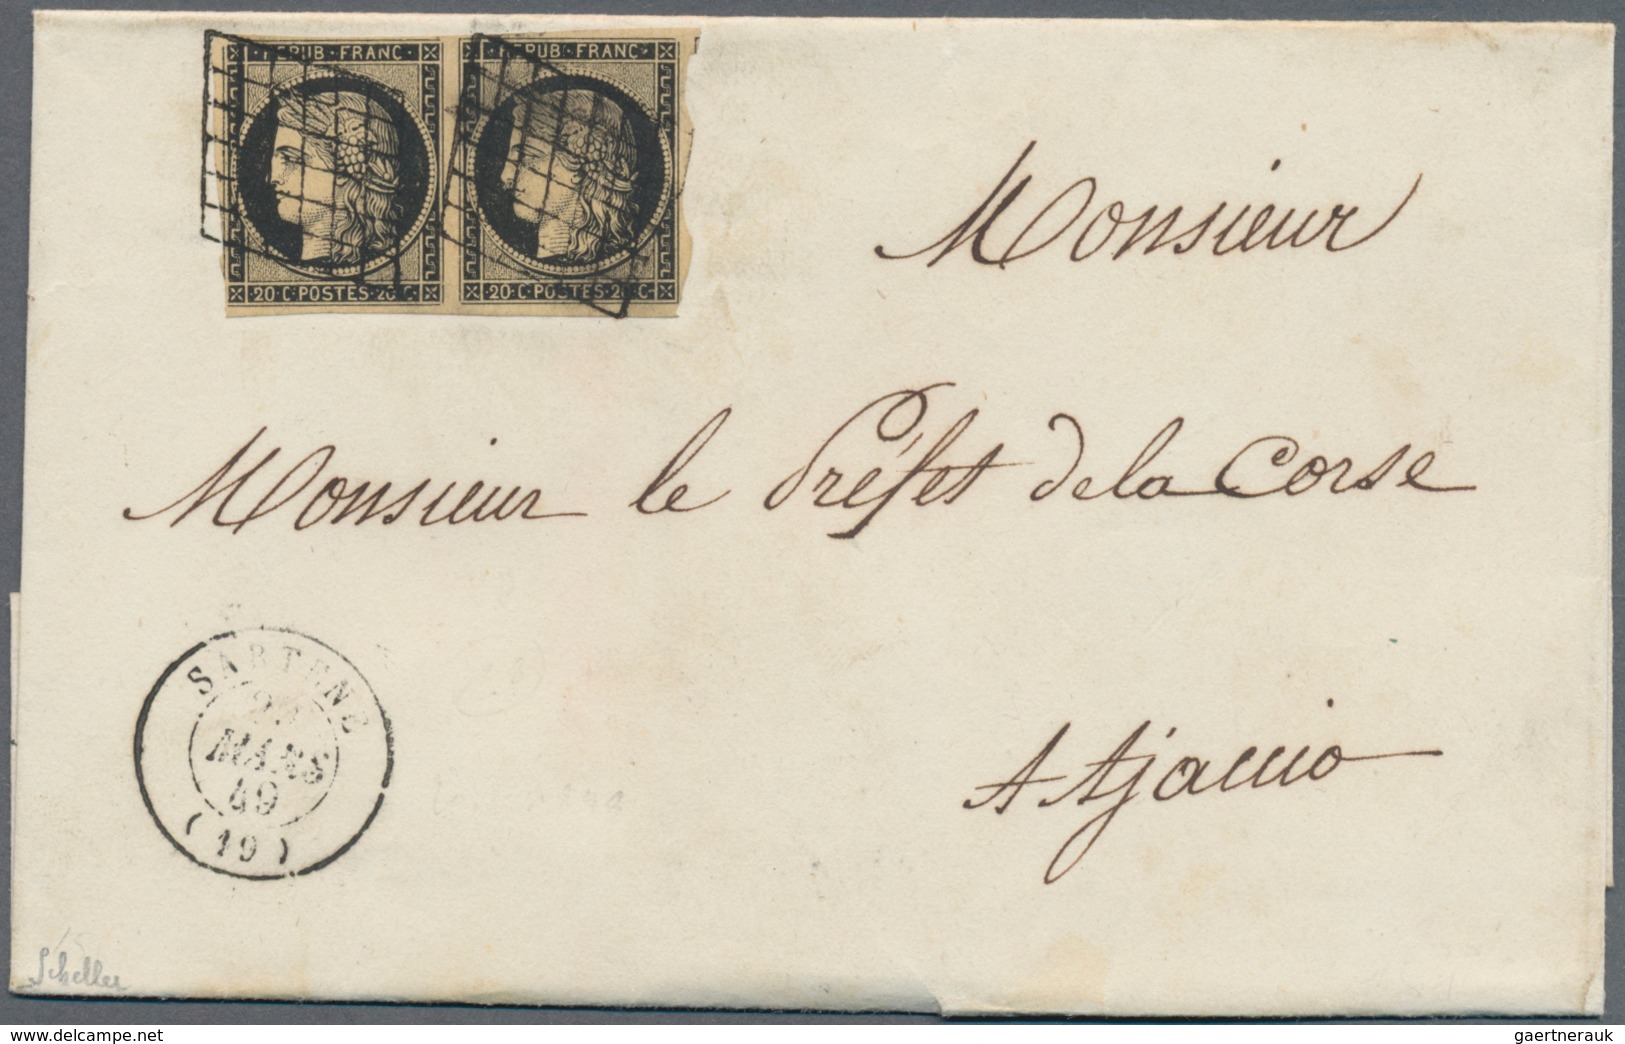 REPUB·FRANC· REPUB·FRANC·
20·C·POSTES·20·C· 20·C·POSTES·20·C·
Monsieur
Monsieur le Préfet de la Corse
A Ajaccio
SARTENE
MARS
49
(19)
Scheller
delcampe.net
gaertnerauk